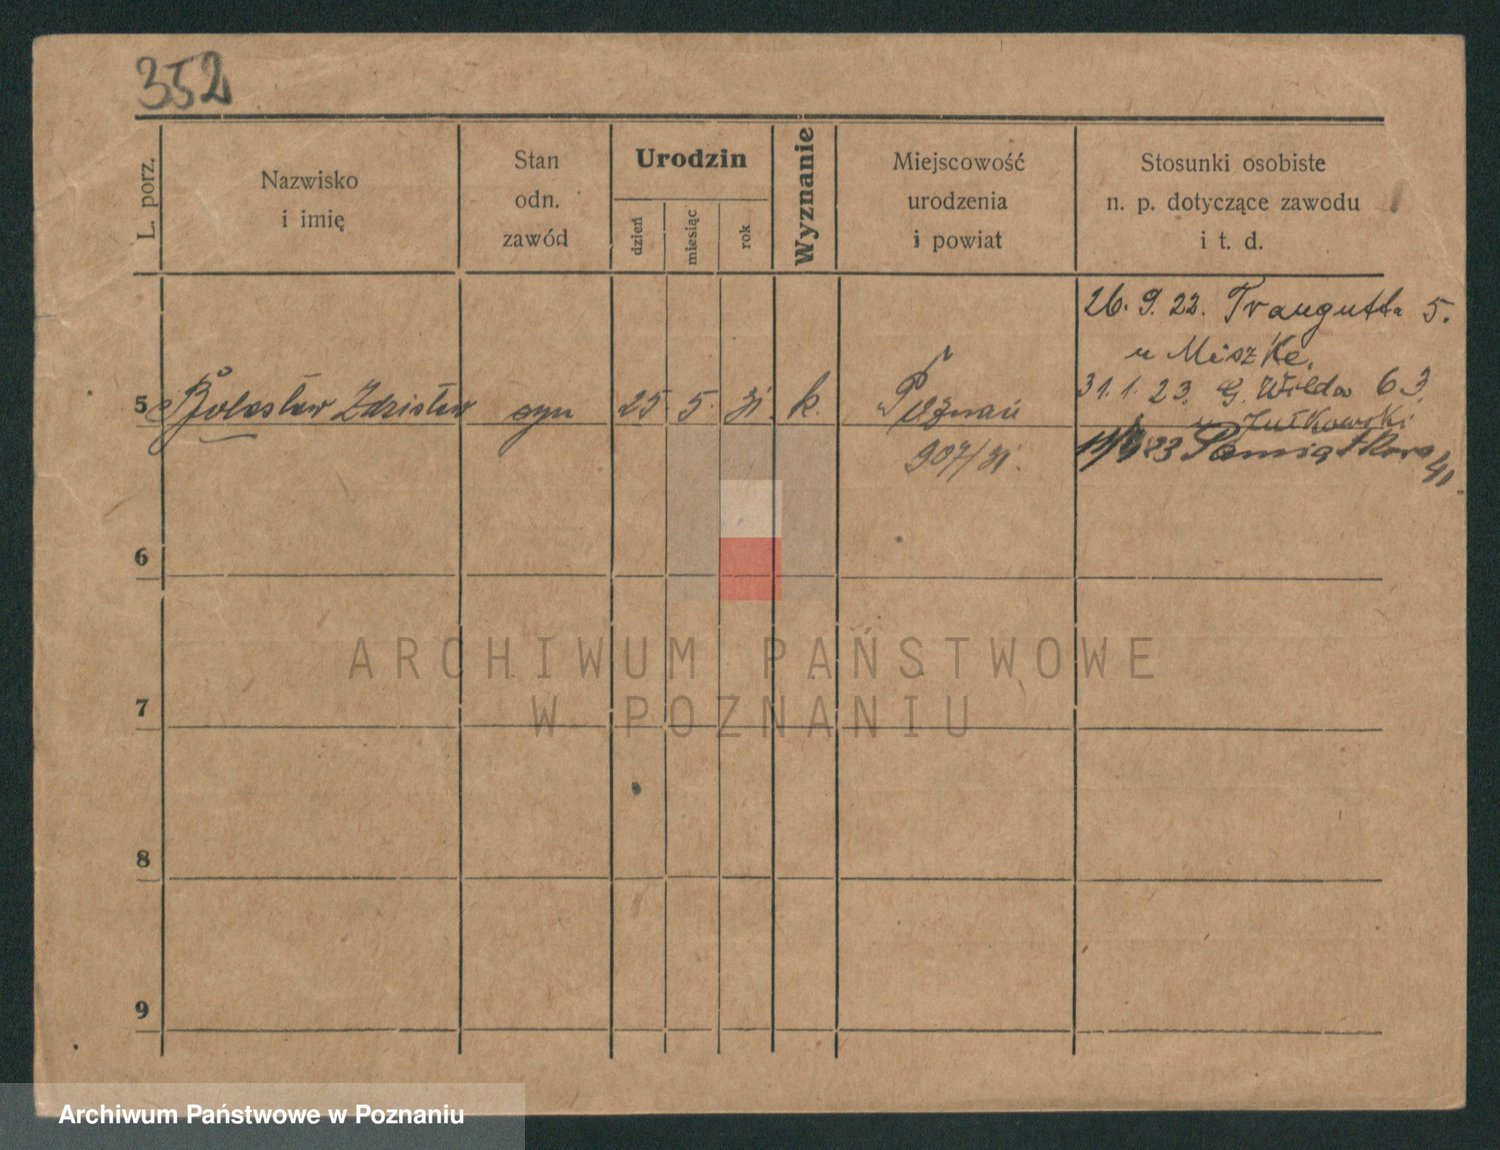 352
L. porz.
Nazwisko
i imię
Stan
odn.
zawód
Urodzin
dzień
miesiąc
rok
Wyznanie
Miejscowość
urodzenia
i powiat
Stosunki osobiste
n. p. dotyczące zawodu
i t. d.
26. 9. 22. Traugutta 5.
u Miszke,
31. 1. 23. G. Wilda 63.
5 Bolesław Zdzisław syn 25. 5. 31. k. Poznań
u Jutkowski
907/31.
23 Pamiątkowa
6
ARCHIWUM PAŃSTWOWE
W POZNANIU
7
8
9
Archiwum Państwowe w Poznaniu